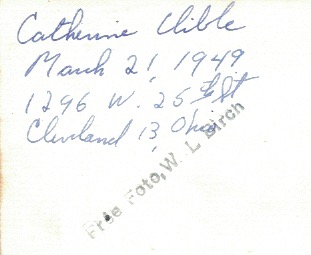 Catherine Clible
March 21, 1949
1296 W. 25 St
Cleveland 13, Ohio
Free Foto, W. L. Birch